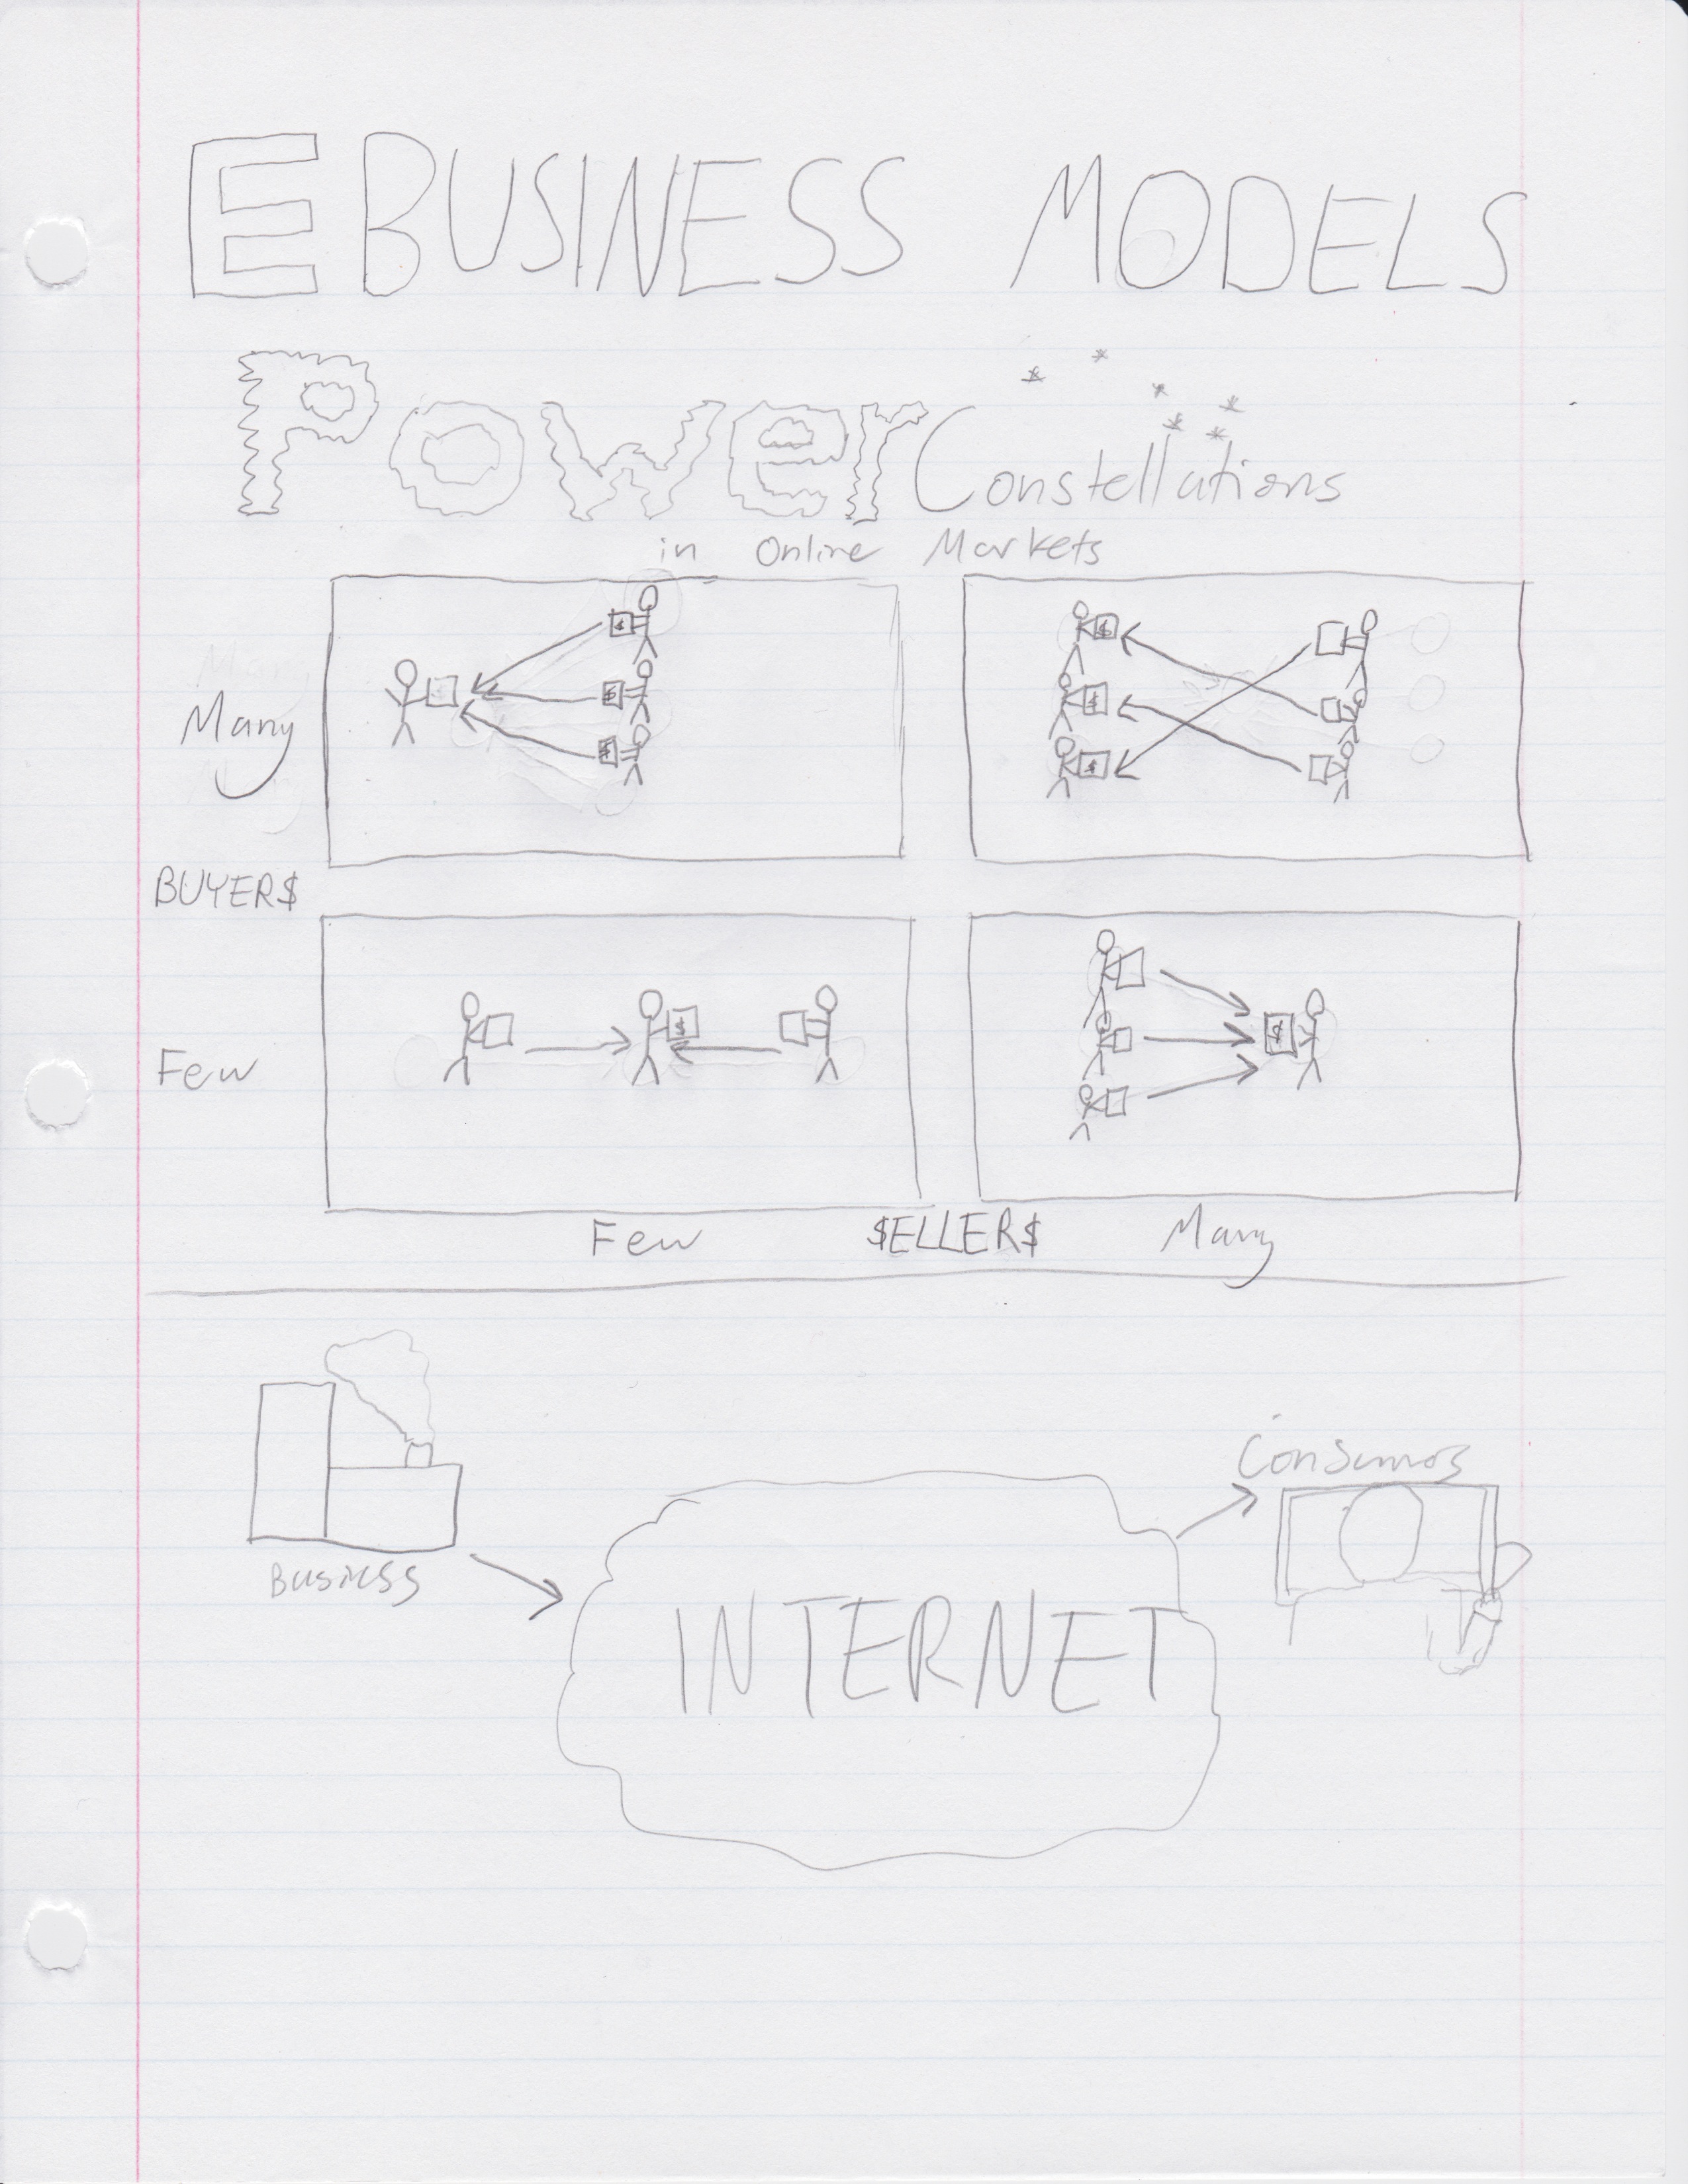 E BUSINESS MODELS
Power Constellations
in Online Markets
$
$
$
$
$
$
Many
BUYER$
$
$
Few
Few $ELLER$ Many
Consumos
Business
INTERNET